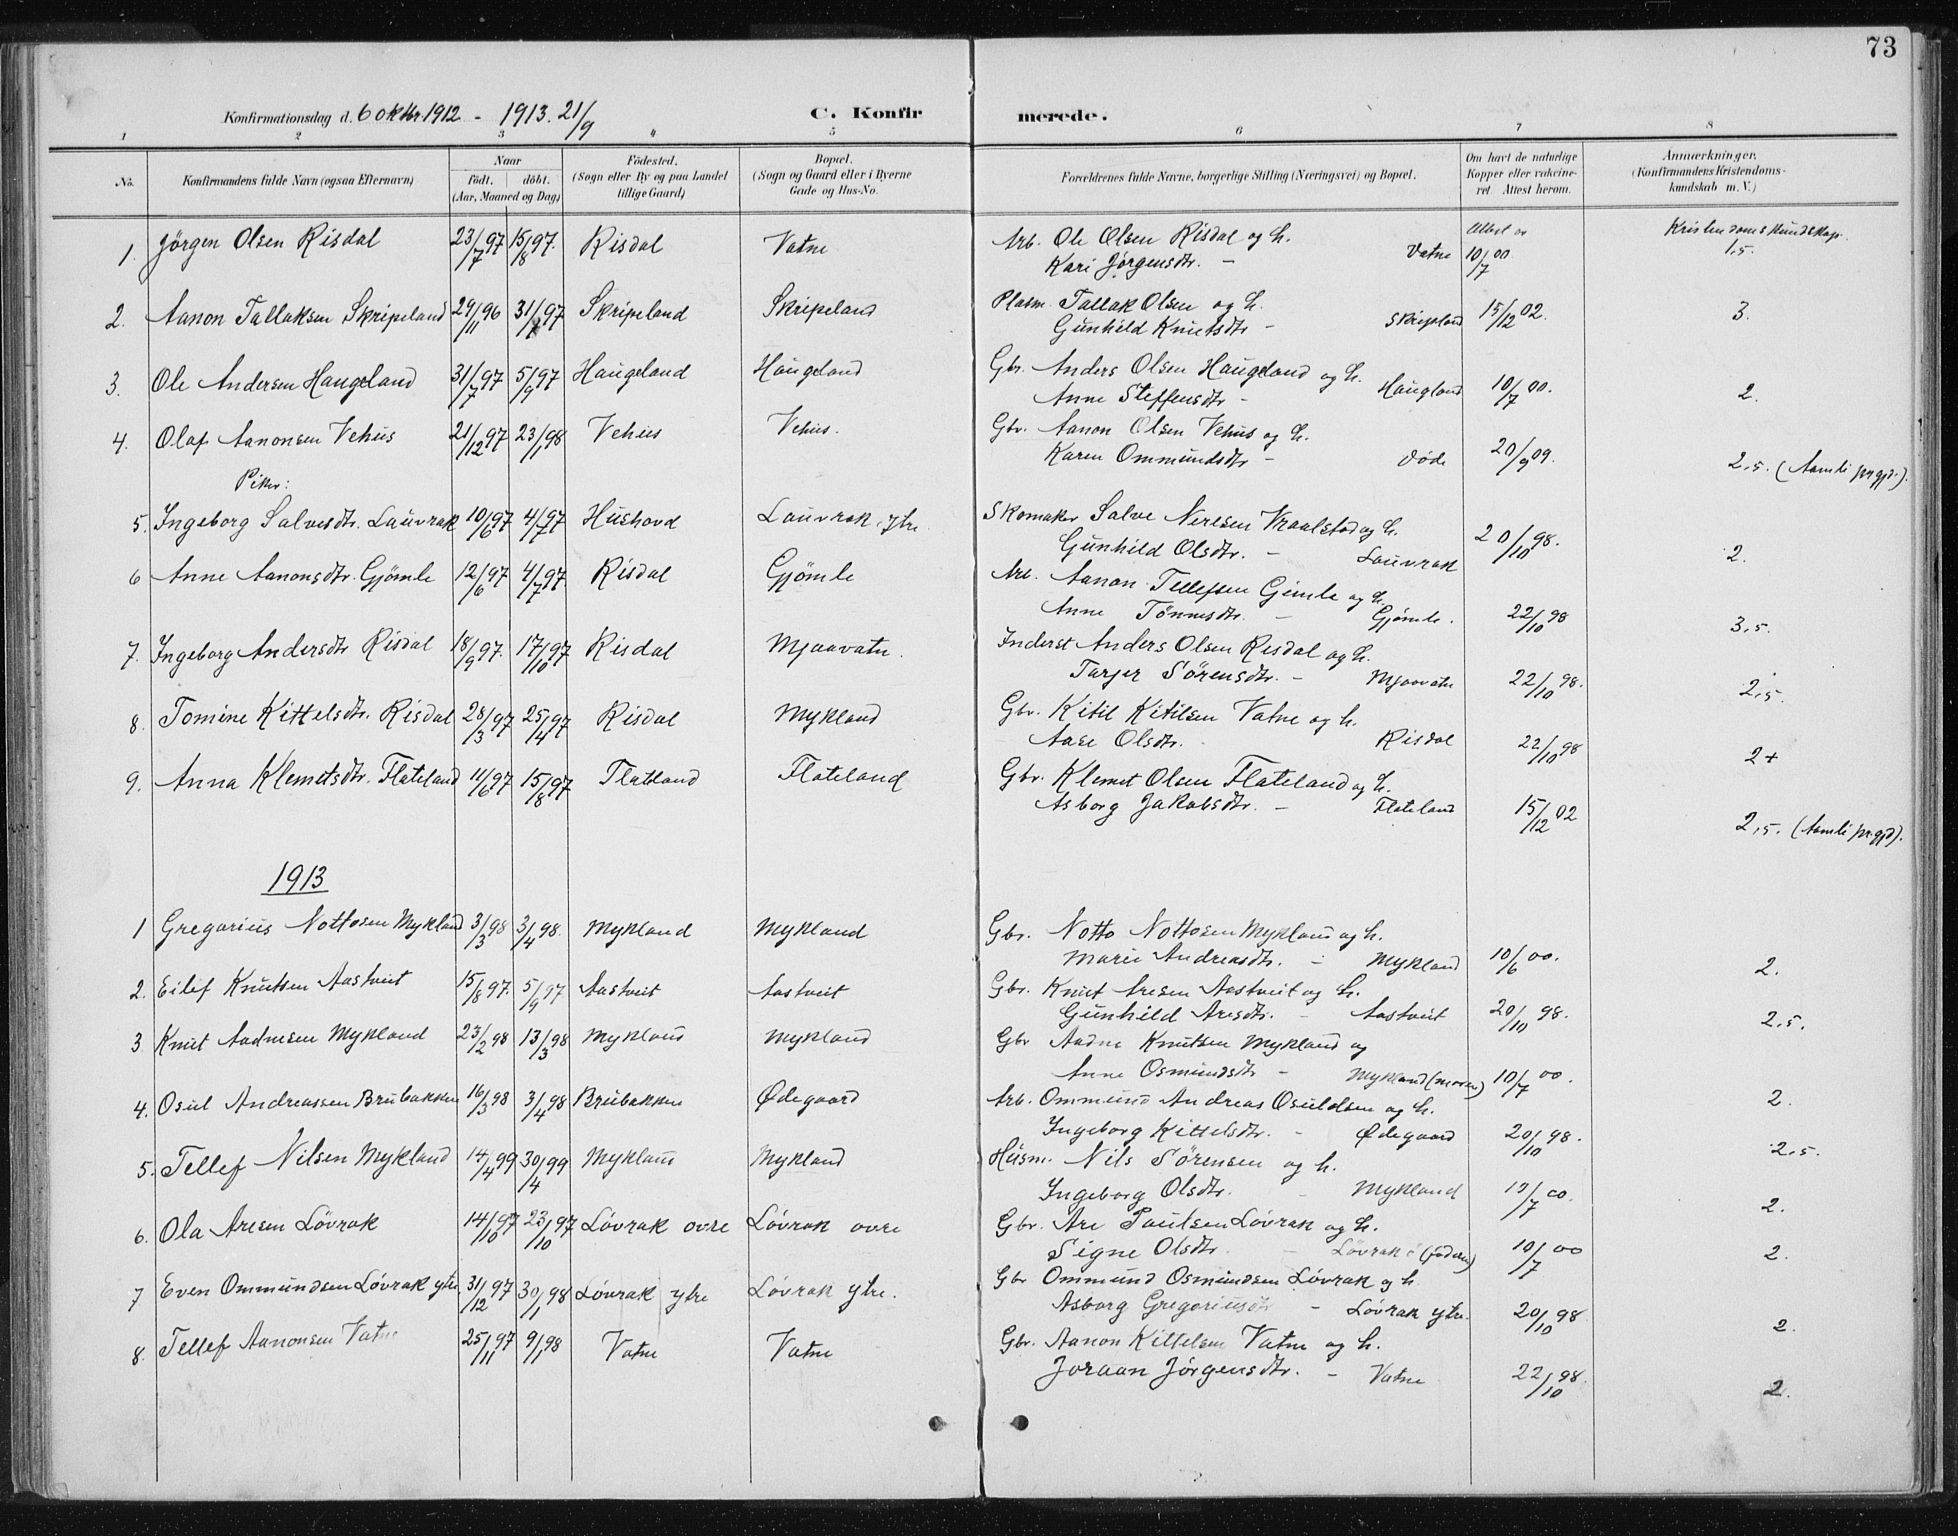 73
Konfirmationsdag d. 6 oktbr. 1912 - 1913. 21/9 C. Konfir merede.
1 2 3 4 5 6 7 8
No. Konfirmandens fulde Navn (ogsaa Efternavn) Naar født. døbt. (Aar, Maaned og Dag) Fødested. (Sogn eller By og paa Landet tillige Gaard) Bopæl. (Sogn og Gaard eller i Byerne Gade og Hus-No. Forældrenes fulde Navne, borgerlige Stilling (Næringsvei) og Bopæl. Om havt de naturlige Kopper eller vakcineret. Attest herom. Anmærkninger. (Konfirmandens Kristendomskundskab m. V.)
Attest av Kristendomskundskap.
1. Jørgen Olsen Risdal 23/7 97 15/8 97. Risdal Vatne Arb. Ole Olsen Risdal og h. 10/7 00. 1,5.
Kari Jørgensdtr. - Vatne
2. Aanon Tallaksen Skripeland 29/11 96 31/97 Skripeland Skripeland Plasm. Tallak Olsen og h. 15/12 02. 3.
Gunhild Knutsdtr - Skripeland
3. Ole Andersen Haugeland 31/7 97 5/9 97 Haugeland Haugeland Gbr. Anders Olsen Haugeland og h. 10/7 00. 2.
Anne Steffensdtr - Haugland
4. Olaf Aanonsen Vehus 21/12 97 23/1 98 Vehus Vehus. Gbr. Aanon Olsen Vehus og h.
Karen Ommundsdtr - døde 20/9 09. 2,5. (Aamli prgjd.).
Piker:
5. Ingeborg Salvesdtr. Lauvrak 10/6 97 4/7 97 Hushovd Lauvrak, ytre Skomaker Salve Neresen Vraalstad og h.
Gunhild Olsdtr. - Lauvrak 20/10 98. 2.
6 Anne Aanonsdtr. Gjømle 12/6 97 4/7 97. Risdal Gjømle Arb. Aanon Tellefsen Gimle og h.
Anne Tønnesdtr. - Gjømle. 22/10 98 3,5.
7. Ingeborg Andersdtr Risdal 18/9 97. 17/10 97 Risdal Mjaavatn. Inderst Anders Olsen Risdal og h.
Tarjer Sørensdtr. - Mjaavatn 22/10 98. 2,5.
8. Tomine Kittelsdtr. Risdal 28/3 97 25/4 97 Risdal Mykland Gbr. Kitil Kitilsen Vatne og h.
Aase Olsdtr. Risdal 22/10 98 2+
9. Anna Klemetsdtr. Flateland 11/6 97 15/8 97 Flateland Flateland Gbr. Klemet Olsen Flateland og h.
Asborg Jakobsdtr. - Flateland 15/12 02 2,5. (Aamli prgjd).
1913
1 Gregorius Nottosen Mykland 3/3 98 3/4 98. Mykland Mykland Gbr. Notto Nottosen Mykland og h.
Marie Andreasdtr. - Mykland 10/6 00. 2.
2. Eilef Knutsen Aastveit 15/8 97. 5/9 97 Aastveit Aastveit Gbr. Knut Aresen Aastveit og h.
Gunhild Aresdtr. - Aastveit 20/10 98. 2,5.
3 Knut Aadnesen Mykland 23/2 98 13/3 98 Mykland Mykland Gbr Aadne Knutsen Mykland og
Anne Osmundsdtr - Mykland (moren) 10/7 00. 2.
4. Osul Andreassen Brubakken 16/3 98 3/4 98 Brubakken Ødegaard Arb. Ommund Andreas Osulolsen og h.
Ingeborg Kittelsdtr. - Ødegaard 20/10 98. 2,5.
5. Tellef Nilsen Mykland 14/4 99 30/4 99 Mykland Mykland Husm. Nils Sørensen og h.
Ingeborg Olsdtr. - Mykland 10/7 00. 2.
6. Ola Aresen Løvrak 14/10 97 23/10 97 Løvrak øvre Løvrak øvre Gbr. Are Paulsen Løvrak og h.
Signe Olsdtr. - Løvrak ø (faderen) 10/7 00 2.
7 Even Ommundsen Løvrak ytre 31/12 97 30/1 98 Løvrak ytre Løvrak ytre. Gbr Ommund Osmundsen Løvrak og h.
Asborg Gregoriusdtr - Løvrak ytre. 20/10 98 2.
8. Tellef Aanonsen Vatne 25/11 97 9/1 98 Vatne Vatne Gbr. Aanon Kittelsen Vatne og h.
Joraan Jørgensdtr. - Vatne 22/10 98. 2.